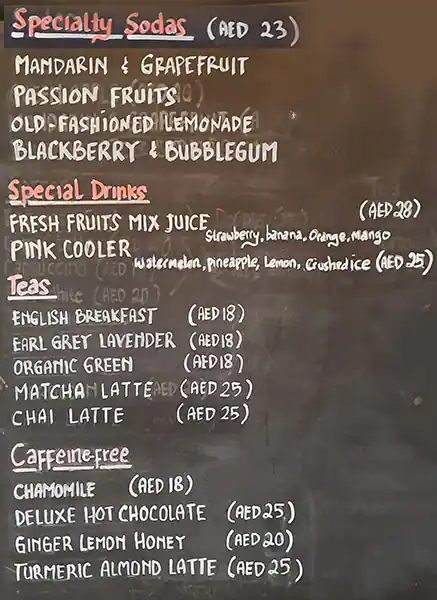 Specialty Sodas (AED 23)
MANDARIN & GRAPEFRUIT
PASSION FRUITS
OLD-FASHIONED LEMONADE
BLACKBERRY & BUBBLEGUM
Special Drinks
FRESH FRUITS MIX JUICE (AED 28)
Strawberry, banana, Orange, Mango
PINK COOLER
Watermelon, pineapple, Lemon, Crushed ice (AED 25)
Teas
ENGLISH BREAKFAST (AED 18)
EARL GREY LAVENDER (AED 18)
ORGANIC GREEN (AED 18)
MATCHA LATTE (AED 25)
CHAI LATTE (AED 25)
Caffeine-free
CHAMOMILE (AED 18)
DELUXE HOT CHOCOLATE (AED 25)
GINGER LEMON HONEY (AED 20)
TURMERIC ALMOND LATTE (AED 25)